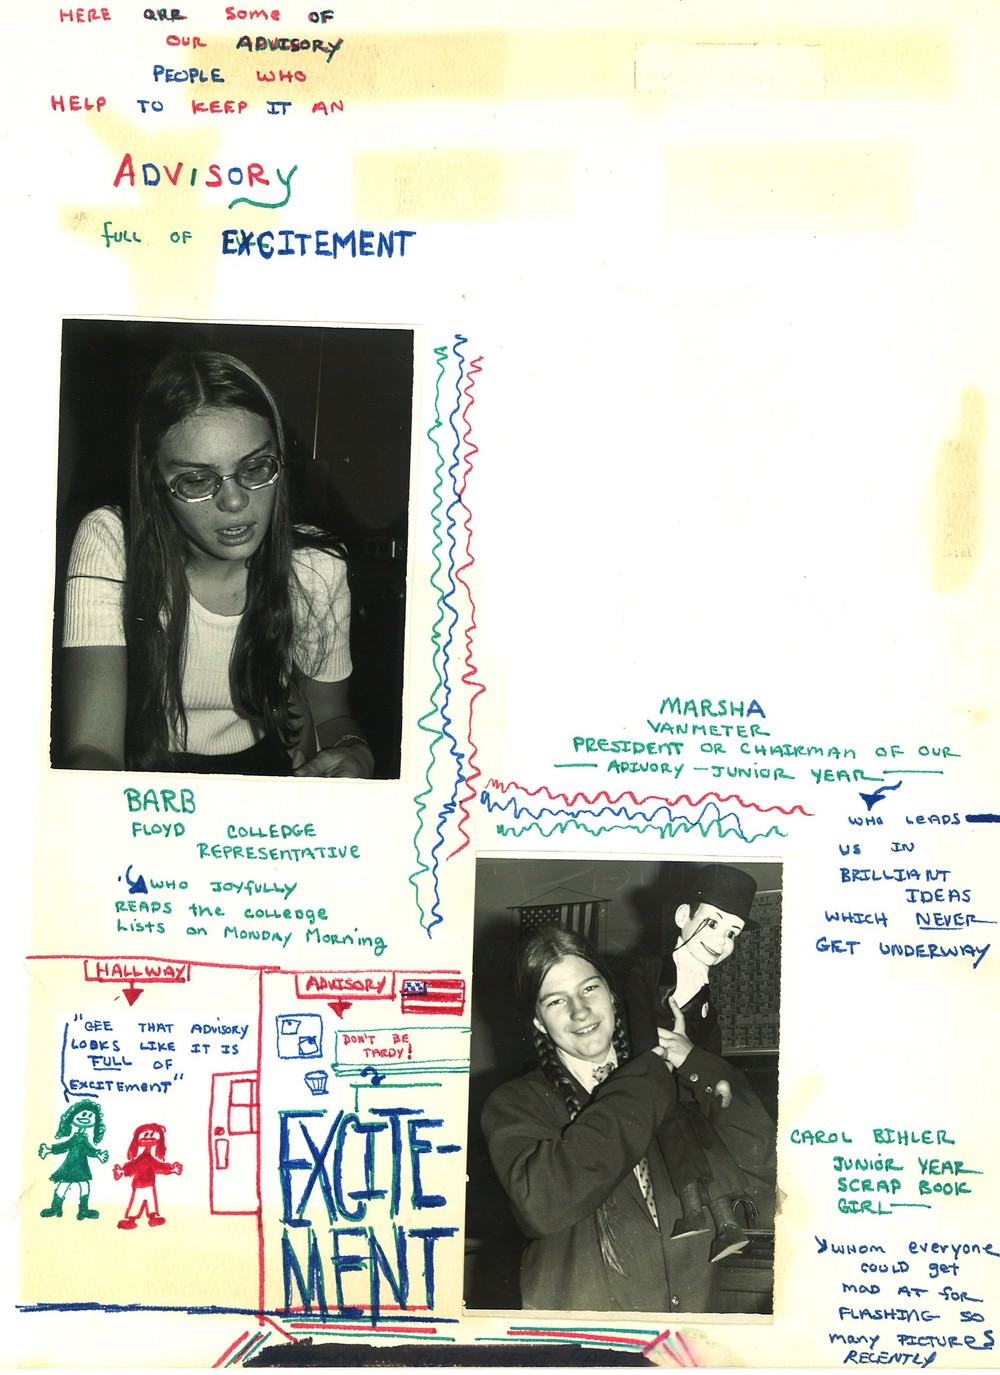 HERE ARE Some OF
OUR ADVISORY
PEOPLE WHO
HELP TO KEEP IT AN
ADVISORY
full OF EXCITEMENT
MARSHA
VANMETER
PRESIDENT OR CHAIRMAN OF OUR
ADIVORY - JUNIOR YEAR
WHO LEADS
US IN
BRILLIANT
IDEAS
WHICH NEVER
GET UNDERWAY
BARB
FLOYD COLLEDGE
REPRESENTATIVE
WHO JOYFULLY
READS the colledge
Lists on MONDAY Morning
HALLWAY
"GEE THAT ADVISORY
LOOKS LIKE IT IS
FULL OF
EXCITEMENT"
ADVISORY
DON'T BE
TARDY!
EXCITE-
MENT
CAROL BIHLER
JUNIOR YEAR
SCRAP BOOK
GIRL
WHOM everyone
COULD get
MAD AT for
FLASHING SO
many PICTURES
RECENTLY